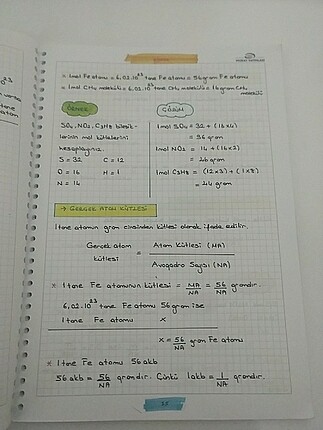 = 1mol Fe atomu = 6,02.10²³ tane Fe atomu = 56 gram Fe atomu
= 1mol CH₄ molekülü = 6,02.10²³ tane CH₄ molekülü = 16 gram CH₄ molekülü
ÖRNEK
SO₂, NO₂, C₃H₈ bileşik-
lerinin mol kütlelerini
hesaplayınız.
S = 32 C = 12
O = 16 H = 1
N = 14
ÇÖZÜM
1mol SO₄ = 32 + (16x4)
= 96 gram
1mol NO₂ = 14 + (16x2)
= 46 gram
1mol C₃H₈ = (12x3) + (1x8)
= 44 gram
→ GERÇEK ATOM KÜTLESİ
1 tane atomun gram cinsinden kütlesi olarak ifade edilir.
Gerçek atom kütlesi = Atom Kütlesi (MA) / Avogadro Sayısı (NA)
* 1 tane Fe atomunun kütlesi = MA/NA = 56/NA gramdır.
6,02.10²³ tane Fe atomu 56 gram ise
1 tane Fe atomu x
x = 56/NA gram Fe atomu
* 1 tane Fe atomu 56 akb
56 akb = 56/NA gramdır. Çünkü 1akb = 1/NA gramdır.